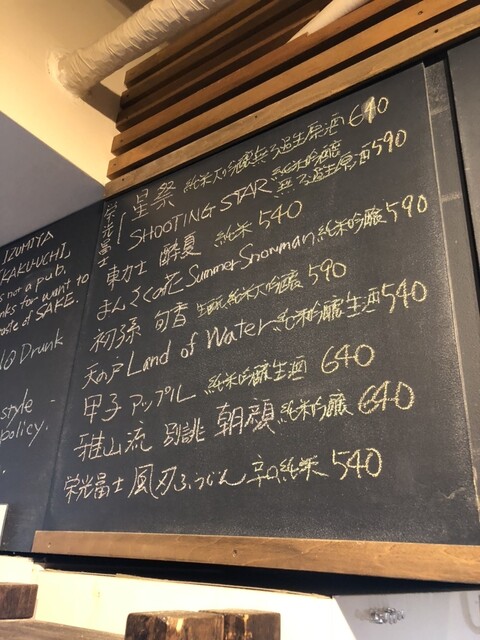 IZUMIYA
[KAKUUCHI]
is not a pub.
nks for want to
taste of SAKE.
Drunk
style
policy.
栄光冨士
星祭 純米大吟醸無ろ過生原酒 640
SHOOTING STAR 純米吟醸無ろ過生原酒 590
東力士 酔夏 純米 540
まんさくの花 Summer Snowman 純米吟醸 590
初孫 旬香 生酛純米大吟醸 590
天の戸 Land of Water 純米吟醸生酒 540
甲子 アップル 純米吟醸生酒 640
雅山流 別誂 朝顔 純米吟醸 640
栄光冨士 風刃ふうじん 辛口純米 540